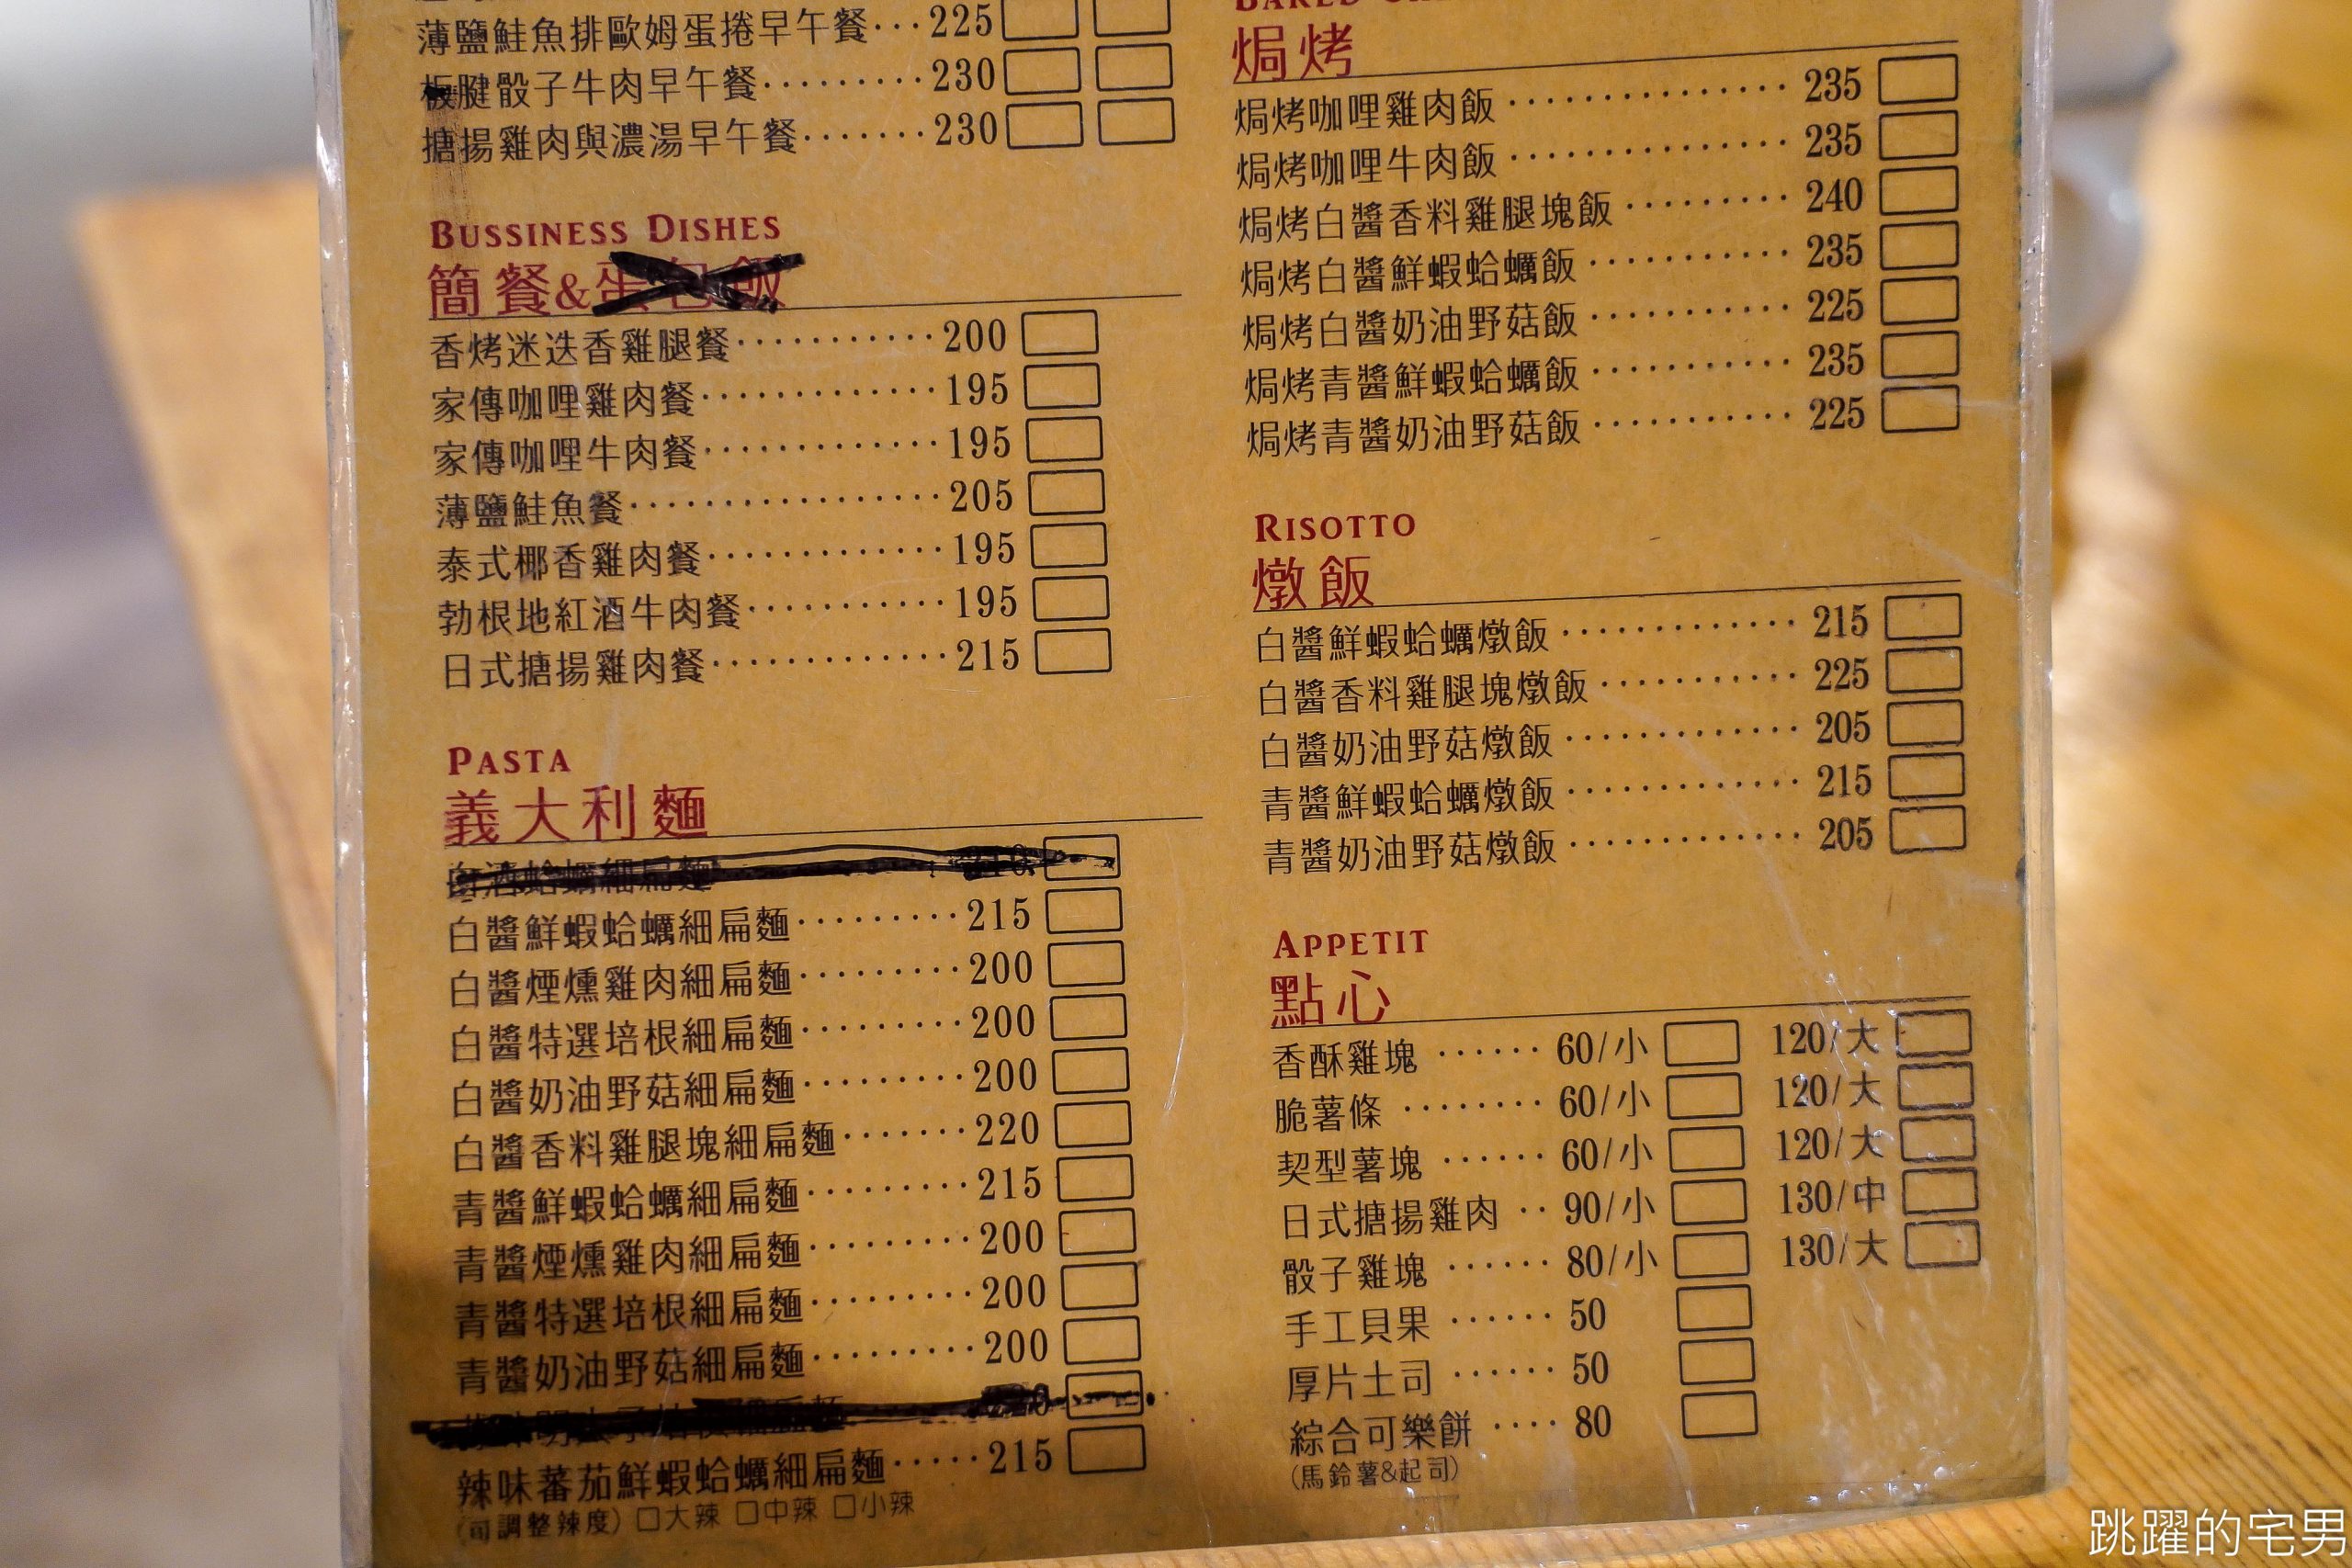 薄鹽鮭魚排歐姆蛋捲早午餐···225
板腱骰子牛肉早午餐·········230
搪揚雞肉與濃湯早午餐·······230
BUSSINESS DISHES
簡餐&蛋包飯
香烤迷迭香雞腿餐···········200
家傳咖哩雞肉餐·············195
家傳咖哩牛肉餐·············195
薄鹽鮭魚餐·················205
泰式椰香雞肉餐·············195
勃根地紅酒牛肉餐···········195
日式搪揚雞肉餐·············215
PASTA
義大利麵
白酒蛤蠣細扁麵
白醬鮮蝦蛤蠣細扁麵·········215
白醬煙燻雞肉細扁麵·········200
白醬特選培根細扁麵·········200
白醬奶油野菇細扁麵·········200
白醬香料雞腿塊細扁麵·······220
青醬鮮蝦蛤蠣細扁麵·········215
青醬煙燻雞肉細扁麵·········200
青醬特選培根細扁麵·········200
青醬奶油野菇細扁麵·········200
辣味蕃茄鮮蝦蛤蠣細扁麵·····215
(可調整辣度) □大辣 □中辣 □小辣
焗烤
焗烤咖哩雞肉飯···············235
焗烤咖哩牛肉飯···············235
焗烤白醬香料雞腿塊飯·········240
焗烤白醬鮮蝦蛤蠣飯···········235
焗烤白醬奶油野菇飯···········225
焗烤青醬鮮蝦蛤蠣飯···········235
焗烤青醬奶油野菇飯···········225
RISOTTO
燉飯
白醬鮮蝦蛤蠣燉飯·············215
白醬香料雞腿塊燉飯···········225
白醬奶油野菇燉飯·············205
青醬鮮蝦蛤蠣燉飯·············215
青醬奶油野菇燉飯·············205
APPETIT
點心
香酥雞塊 ······ 60/小 120/大
脆薯條 ········ 60/小 120/大
契型薯塊 ······ 60/小 120/大
日式搪揚雞肉 ·· 90/小 130/中
骰子雞塊 ······ 80/小 130/大
手工貝果 ······ 50
厚片土司 ······ 50
綜合可樂餅 ···· 80
(馬鈴薯&起司)
跳躍的宅男